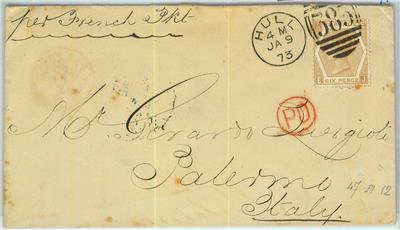 per French Pkt
HULL
4 M
JA 9
73
383
SIX PENCE
PD
Mr. Gerardo
Palermo
Italy.
12